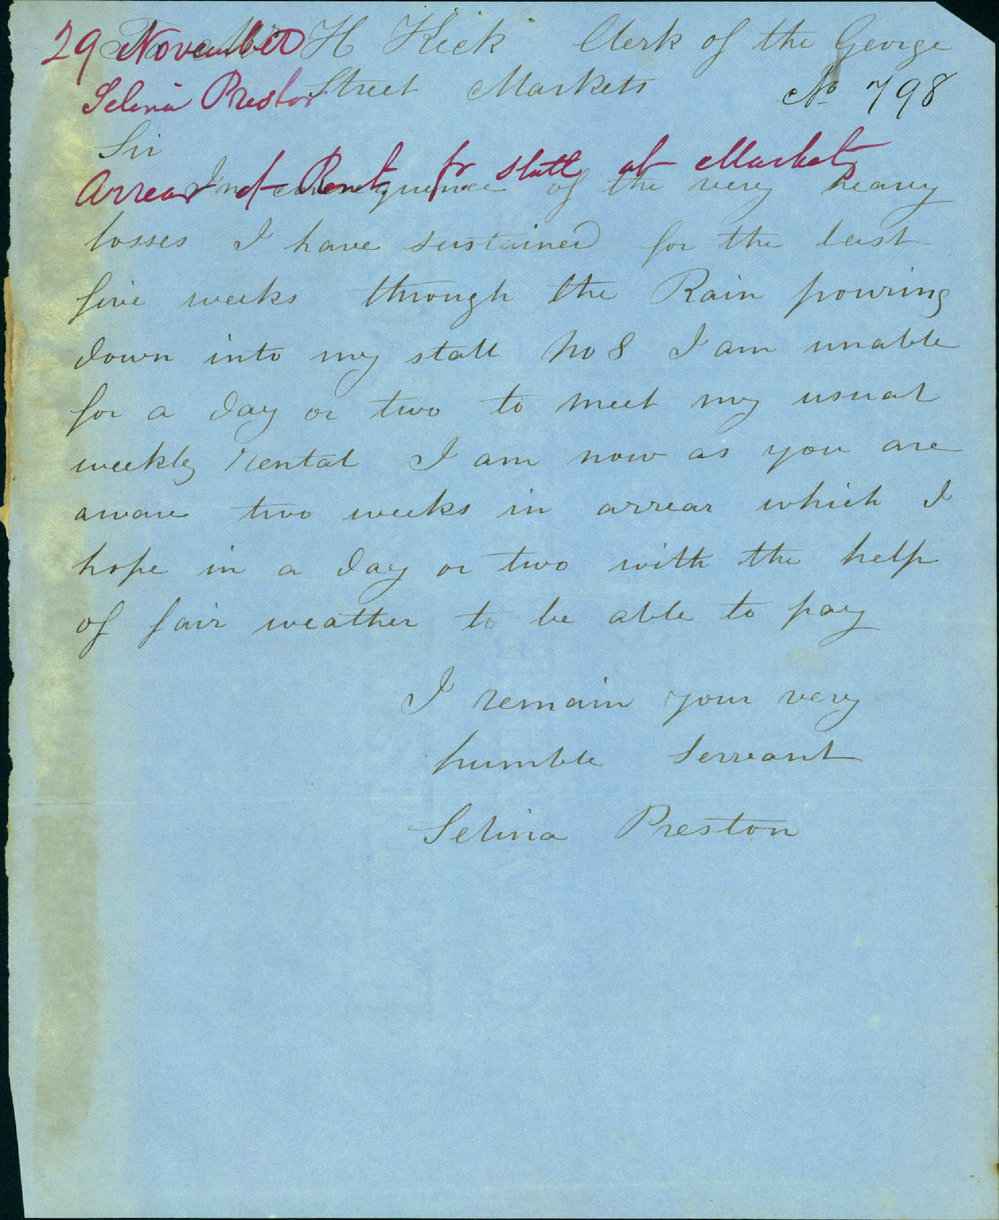 29 November
To Mr H Keck Clerk of the George
Selina Preston
Street Markets
No 798
Sir
Arrear of Rent for stall at Markets
In consequence of the very heavy
losses I have sustained for the last
five weeks through the Rain pouring
down into my stall No 8 I am unable
for a day or two to meet my usual
weekly rental I am now as you are
aware two weeks in arrear which I
hope in a day or two with the help
of fair weather to be able to pay
I remain your very
humble Servant
Selina Preston